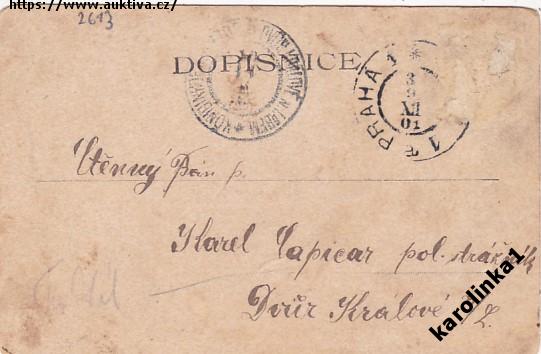 https://www.auktiva.cz/
2613
DOPISNICE
PRAHA 1
3
9
XII
01
Ctěnný Pán p.
Karel Capicar pol. strážník
Dvůr Králové
L.
karolinka1